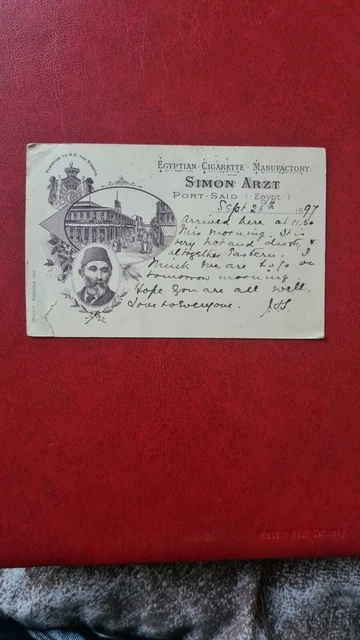 PURVEYOR TO H.H. THE KHEDIVE
EGYPTIAN · CIGARETTE · MANUFACTORY
SIMON ARZT
PORT-SAID (EGYPT)
Sept 26th 1897
Arrived here at 11.30
this morning. It is
very hot and dusty &
altogether Eastern. I
think we are to go on
tomorrow morning.
Hope you are all well.
Love to Everyone.